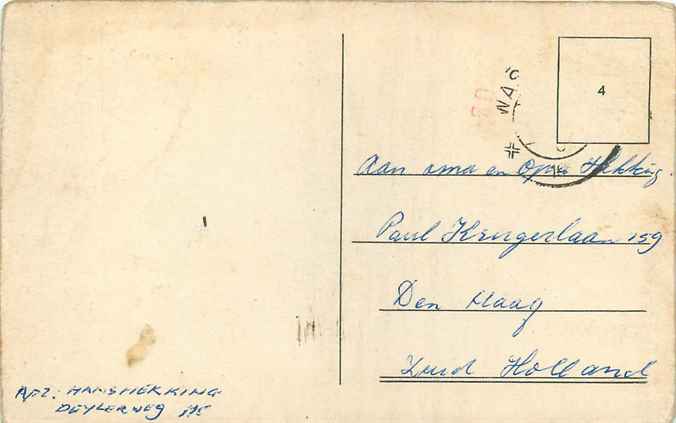 4
WA
Aan oma en Opa Hekking
Paul Krugerlaan 159
Den Haag
Zuid Holland
Afz: HANS HEKKING
DEYLERWEG 115